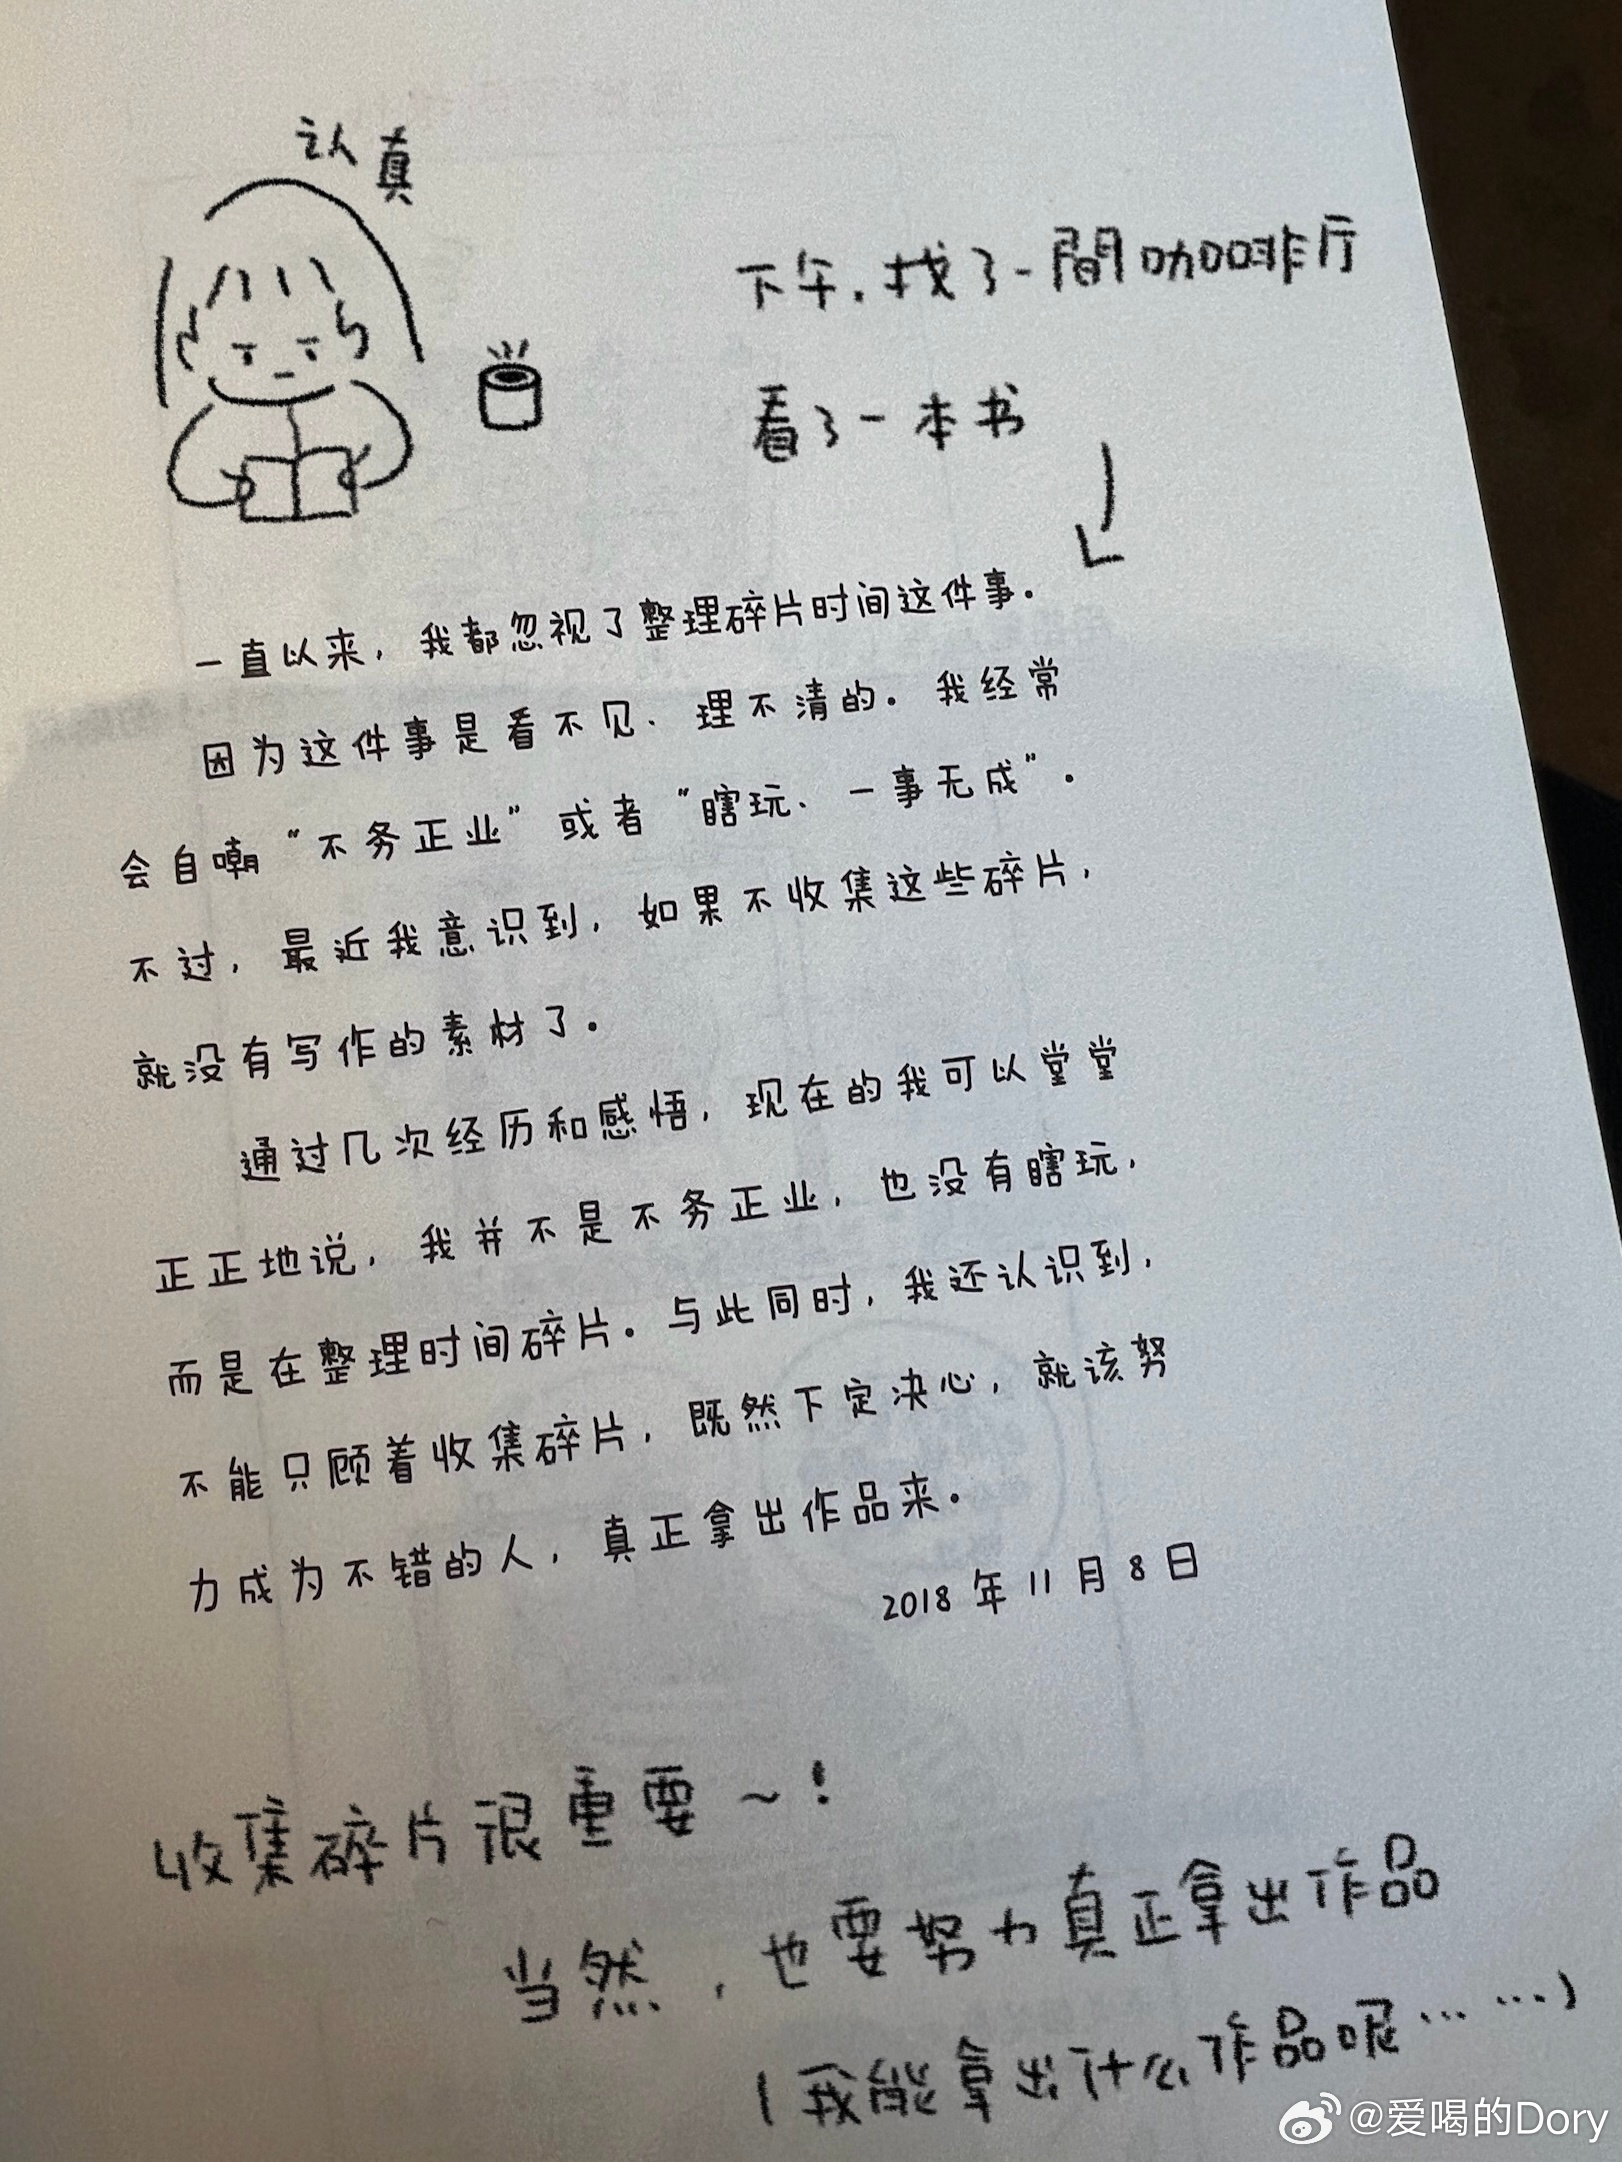 认真
下午,找了一間咖啡厅
看了一本书
一直以来,我都忽视了整理碎片时间这件事。
因为这件事是看不见、理不清的。我经常
会自嘲“不务正业”或者“瞎玩、一事无成”。
不过,最近我意识到,如果不收集这些碎片,
就没有写作的素材了。
通过几次经历和感悟,现在的我可以堂堂
正正地说,我并不是不务正业,也没有瞎玩,
而是在整理时间碎片。与此同时,我还认识到,
不能只顾着收集碎片,既然下定决心,就该努
力成为不错的人,真正拿出作品来。
2018年11月8日
收集碎片很重要~!
当然,也要努力真正拿出作品
(我能拿出什么作品呢……)
@爱喝的Dory